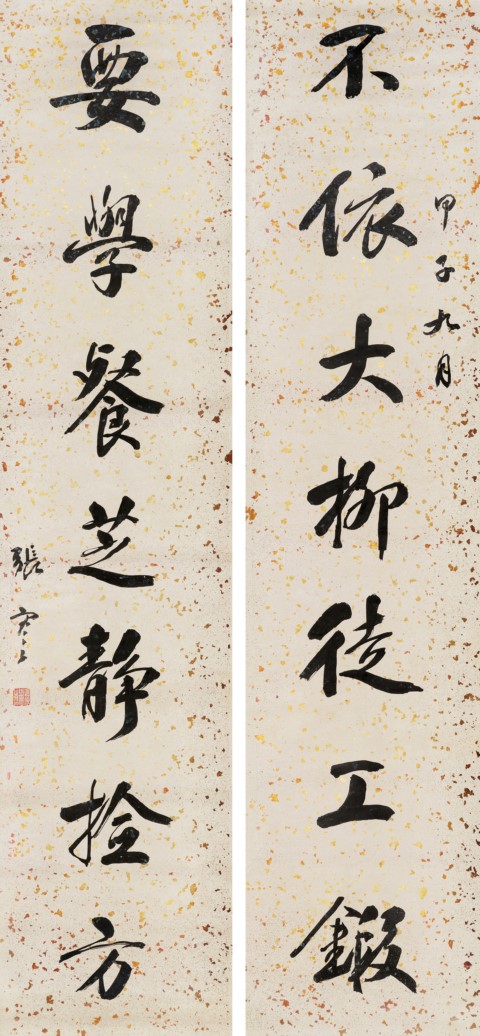 不依大柳徒工鍛
甲子九月
要學餐芝静捡方
張